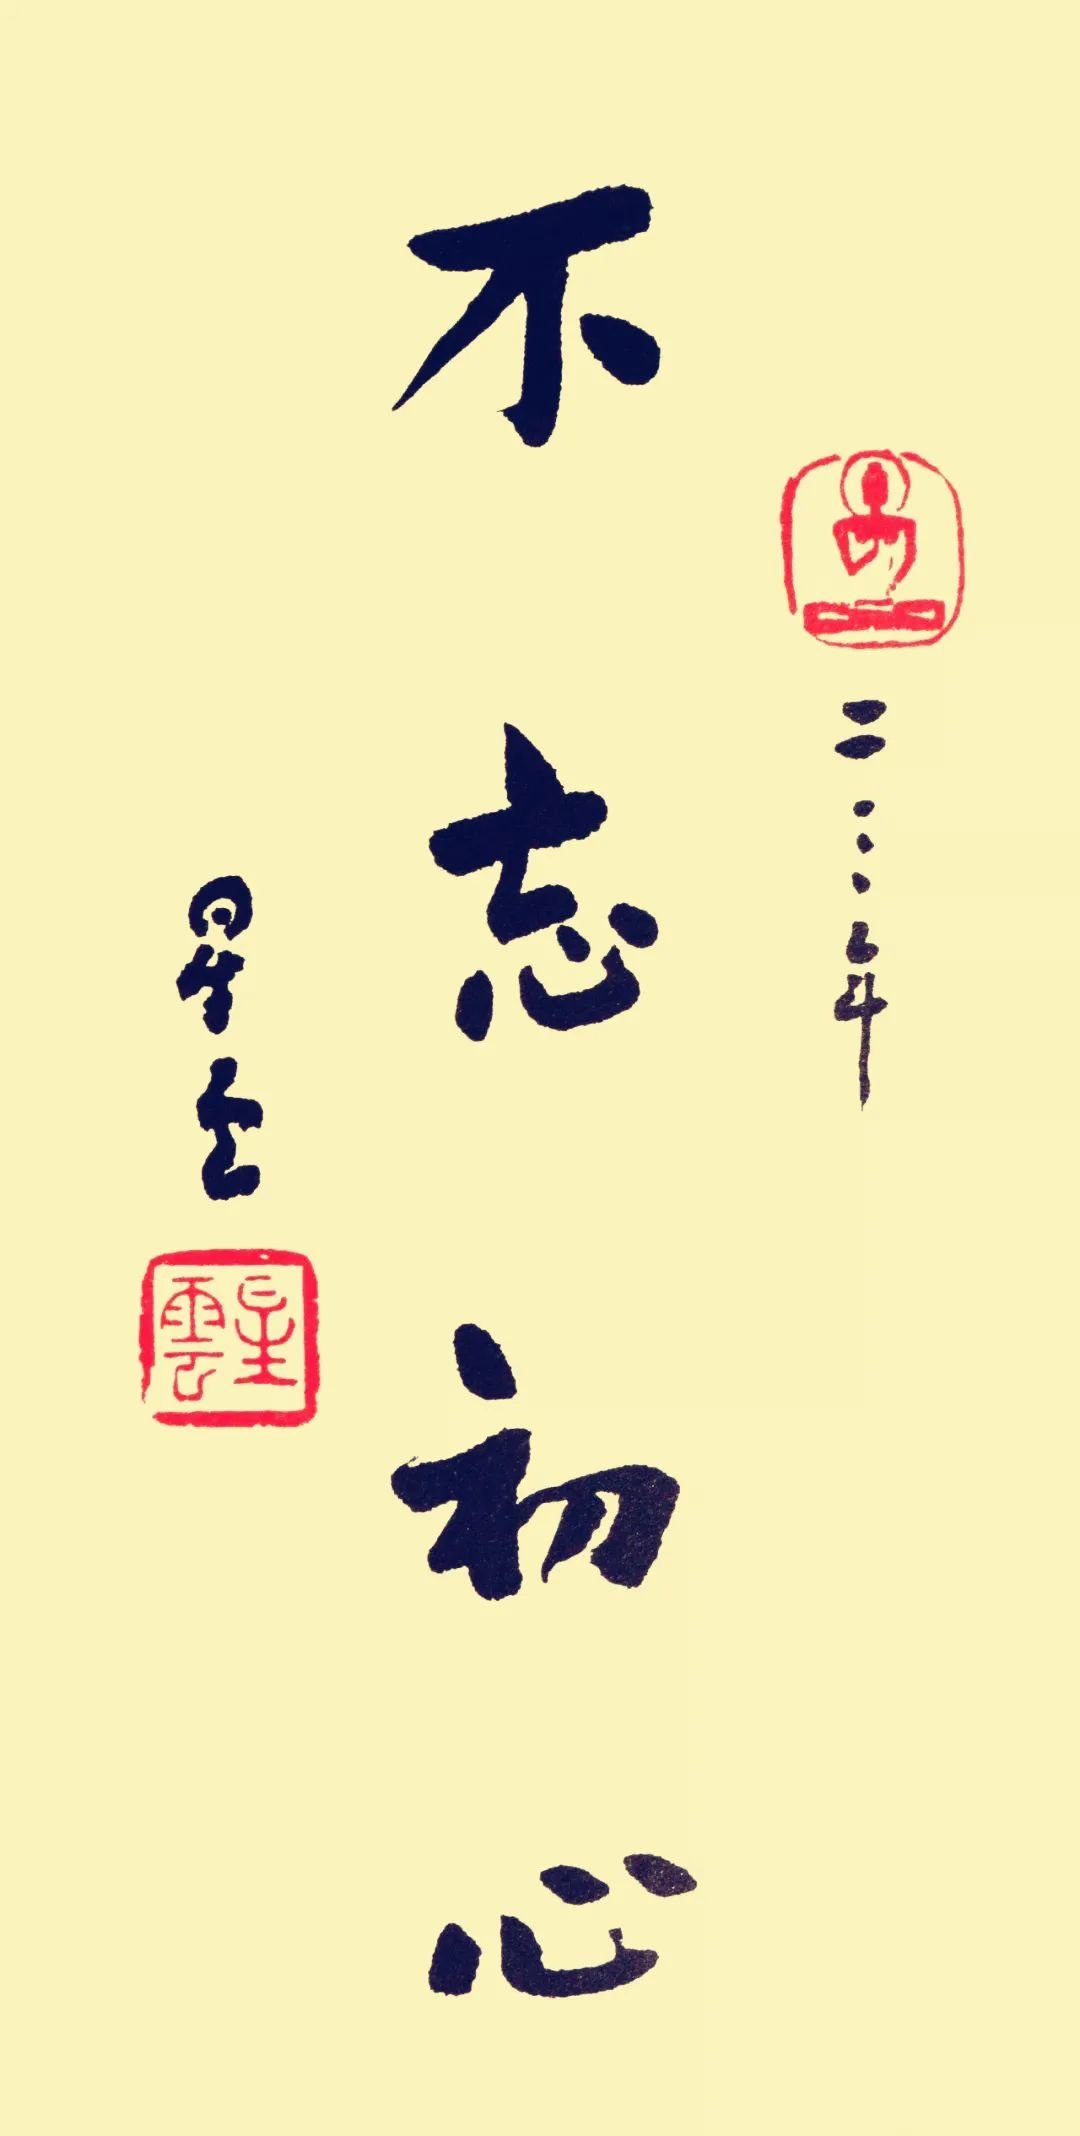 二〇〇六年
不忘初心
星云
星雲